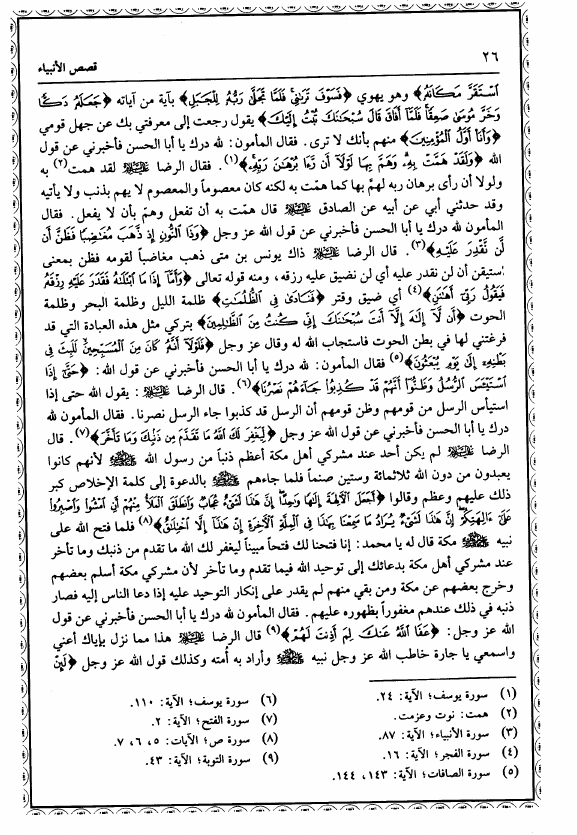 ٢٦
قصص الأنبياء
اسْتَقَرَّ مَكَانَهُ﴾ وهو يهوي ﴿فَسَوْفَ تَرَانِي فَلَمَّا تَجَلَّىٰ رَبُّهُ لِلْجَبَلِ﴾ بآية من آياته ﴿جَعَلَهُ دَكًّا
وَخَرَّ مُوسَىٰ صَعِقًا فَلَمَّا أَفَاقَ قَالَ سُبْحَانَكَ تُبْتُ إِلَيْكَ﴾ يقول رجعت إلى معرفتي بك عن جهل قومي
﴿وَأَنَا أَوَّلُ الْمُؤْمِنِينَ﴾ منهم بأنك لا ترى. فقال المأمون: لله درك يا أبا الحسن فأخبرني عن قول
الله ﴿وَلَقَدْ هَمَّتْ بِهِ وَهَمَّ بِهَا لَوْلَا أَن رَّءَا بُرْهَانَ رَبِّهِ﴾(١). فقال الرضا عليه السلام لقد همت(٢) به
ولولا أن رأى برهان ربه لهمَّ بها كما همّت به لكنه كان معصوماً والمعصوم لا يهم بذنب ولا يأتيه
وقد حدثني أبي عن أبيه عن الصادق عليه السلام قال همّت به أن تفعل وهمّ بأن لا يفعل. فقال
المأمون لله درك يا أبا الحسن فأخبرني عن قول الله عز وجل ﴿وَذَا النُّونِ إِذ ذَّهَبَ مُغَاضِبًا فَظَنَّ أَن
لَّن نَّقْدِرَ عَلَيْهِ﴾(٣). قال الرضا عليه السلام ذاك يونس بن متى ذهب مغاضباً لقومه فظن بمعنى
إستيقن أن لن نقدر عليه أي لن نضيق عليه رزقه، ومنه قوله تعالى ﴿وَأَمَّا إِذَا مَا ابْتَلَاهُ فَقَدَرَ عَلَيْهِ رِزْقَهُ
فَيَقُولُ رَبِّي أَهَانَنِ﴾(٤) أي ضيق وقتر ﴿فَنَادَىٰ فِي الظُّلُمَاتِ﴾ ظلمة الليل وظلمة البحر وظلمة
الحوت ﴿أَن لَّا إِلَٰهَ إِلَّا أَنتَ سُبْحَانَكَ إِنِّي كُنتُ مِنَ الظَّالِمِينَ﴾ بتركي مثل هذه العبادة التي قد
فرغتني لها في بطن الحوت فاستجاب الله له وقال عز وجل ﴿فَلَوْلَا أَنَّهُ كَانَ مِنَ الْمُسَبِّحِينَ لَلَبِثَ فِي
بَطْنِهِ إِلَىٰ يَوْمِ يُبْعَثُونَ﴾(٥) فقال المأمون: لله درك يا أبا الحسن فأخبرني عن قول الله: ﴿حَتَّىٰ إِذَا
اسْتَيْئَسَ الرُّسُلُ وَظَنُّوا أَنَّهُمْ قَدْ كُذِبُوا جَاءَهُمْ نَصْرُنَا﴾(٦). قال الرضا عليه السلام: يقول الله حتى إذا
استيأس الرسل من قومهم وظن قومهم أن الرسل قد كذبوا جاء الرسل نصرنا. فقال المأمون لله
درك يا أبا الحسن فأخبرني عن قول الله عز وجل ﴿لِيَغْفِرَ لَكَ اللَّهُ مَا تَقَدَّمَ مِن ذَنبِكَ وَمَا تَأَخَّرَ﴾(٧). قال
الرضا عليه السلام لم يكن أحد عند مشركي أهل مكة أعظم ذنباً من رسول الله ﷺ لأنهم كانوا
يعبدون من دون الله ثلاثمائة وستين صنماً فلما جاءهم ﷺ بالدعوة إلى كلمة الإخلاص كبر
ذلك عليهم وعظم وقالوا ﴿أَجَعَلَ الْآلِهَةَ إِلَٰهًا وَاحِدًا إِنَّ هَٰذَا لَشَيْءٌ عُجَابٌ وَانطَلَقَ الْمَلَأُ مِنْهُمْ أَنِ امْشُوا وَاصْبِرُوا
عَلَىٰ آلِهَتِكُمْ إِنَّ هَٰذَا لَشَيْءٌ يُرَادُ مَا سَمِعْنَا بِهَٰذَا فِي الْمِلَّةِ الْآخِرَةِ إِنْ هَٰذَا إِلَّا اخْتِلَاقٌ﴾(٨) فلما فتح الله على
نبيه ﷺ مكة قال له يا محمد: إنا فتحنا لك فتحاً مبيناً ليغفر لك الله ما تقدم من ذنبك وما تأخر
عند مشركي أهل مكة بدعائك إلى توحيد الله فيما تقدم وما تأخر لأن مشركي مكة أسلم بعضهم
وخرج بعضهم عن مكة ومن بقي منهم لم يقدر على إنكار التوحيد عليه إذا دعا الناس إليه فصار
ذنبه في ذلك عندهم مغفوراً بظهوره عليهم. فقال المأمون لله درك يا أبا الحسن فأخبرني عن قول
الله عز وجل: ﴿عَفَا اللَّهُ عَنكَ لِمَ أَذِنتَ لَهُمْ﴾(٩) قال الرضا عليه السلام هذا مما نزل بإياك أعني
واسمعي يا جارة خاطب الله عز وجل نبيه ﷺ وأراد به أُمته وكذلك قول الله عز وجل ﴿لَئِنْ
(١) سورة يوسف؛ الآية: ٢٤.
(٢) همت: نوت وعزمت.
(٣) سورة الأنبياء؛ الآية: ٨٧.
(٤) سورة الفجر؛ الآية: ١٦.
(٥) سورة الصافات؛ الآية: ١٤٣، ١٤٤.
(٦) سورة يوسف؛ الآية: ١١٠.
(٧) سورة الفتح؛ الآية: ٢.
(٨) سورة ص؛ الآيات: ٥، ٦، ٧.
(٩) سورة التوبة؛ الآية: ٤٣.